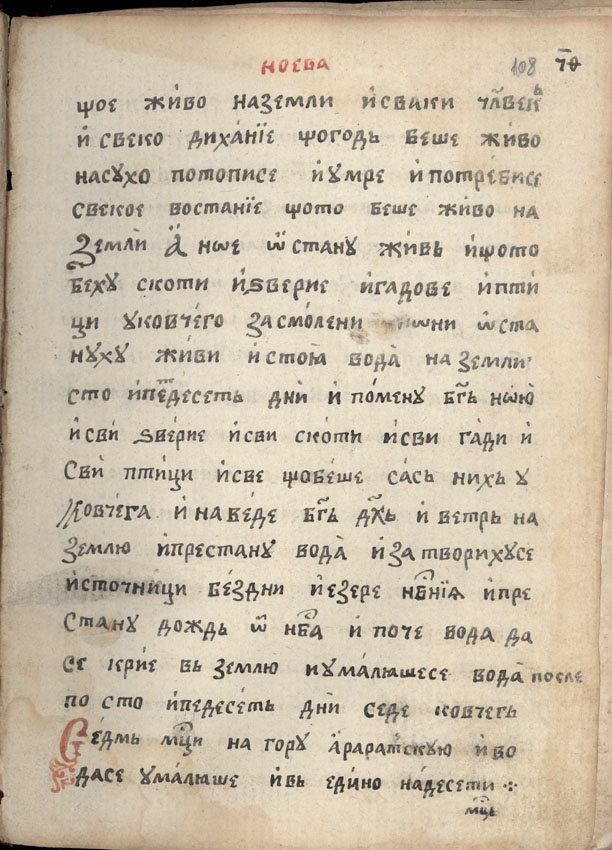 НОЕВА 108 ҃ОѲ
ѱое жи́во на земли и҆ сваки чл҃векъ
и҆ свеко диха́нїе ѱогодь беше живо
на сухо потописе и҆ умре и҆ потребисе
свекое востанїе ѱото беше жи́во на
Земли А҆ ноѡе ѿстану живь и҆ѱото
беху скоти и҆ ѕверие и҆ гадове и҆ пти́
ци у ковчего засмо́лени и҆ ѡни ѿста
нуху живи и҆ стоꙗ̀ вода̀ на земли
сто и҆ педесеть дни̂ и҆ по́мену бг҃ь нѡю̀
и҆ сви̂ ѕверие и҆ сви скоти и҆ сви га́ди и҆
Сви̂ пти́ци и҆ све ѱобеше сась нихь у
Ковче́га и҆ наведе бг҃ь дх҃ь и҆ ветрь на
землю и҆ престану вода̀ и҆ затворихусе
и҆сточници бе́здни и҆ езере нб҃нїѧ и҆ пре
Стану дождь ѿ нб҃а и҆ поче вода да
се крие вь землю и умалюшесе вода̀ после
по сто и҆ педесеть дни̂ седе ковчегь
Се́дмь мц҃и на гору а҆рара́тскую и҆ во
дасе умалюше и҆ вь еди́но на́десети ⁘
мц҃ь